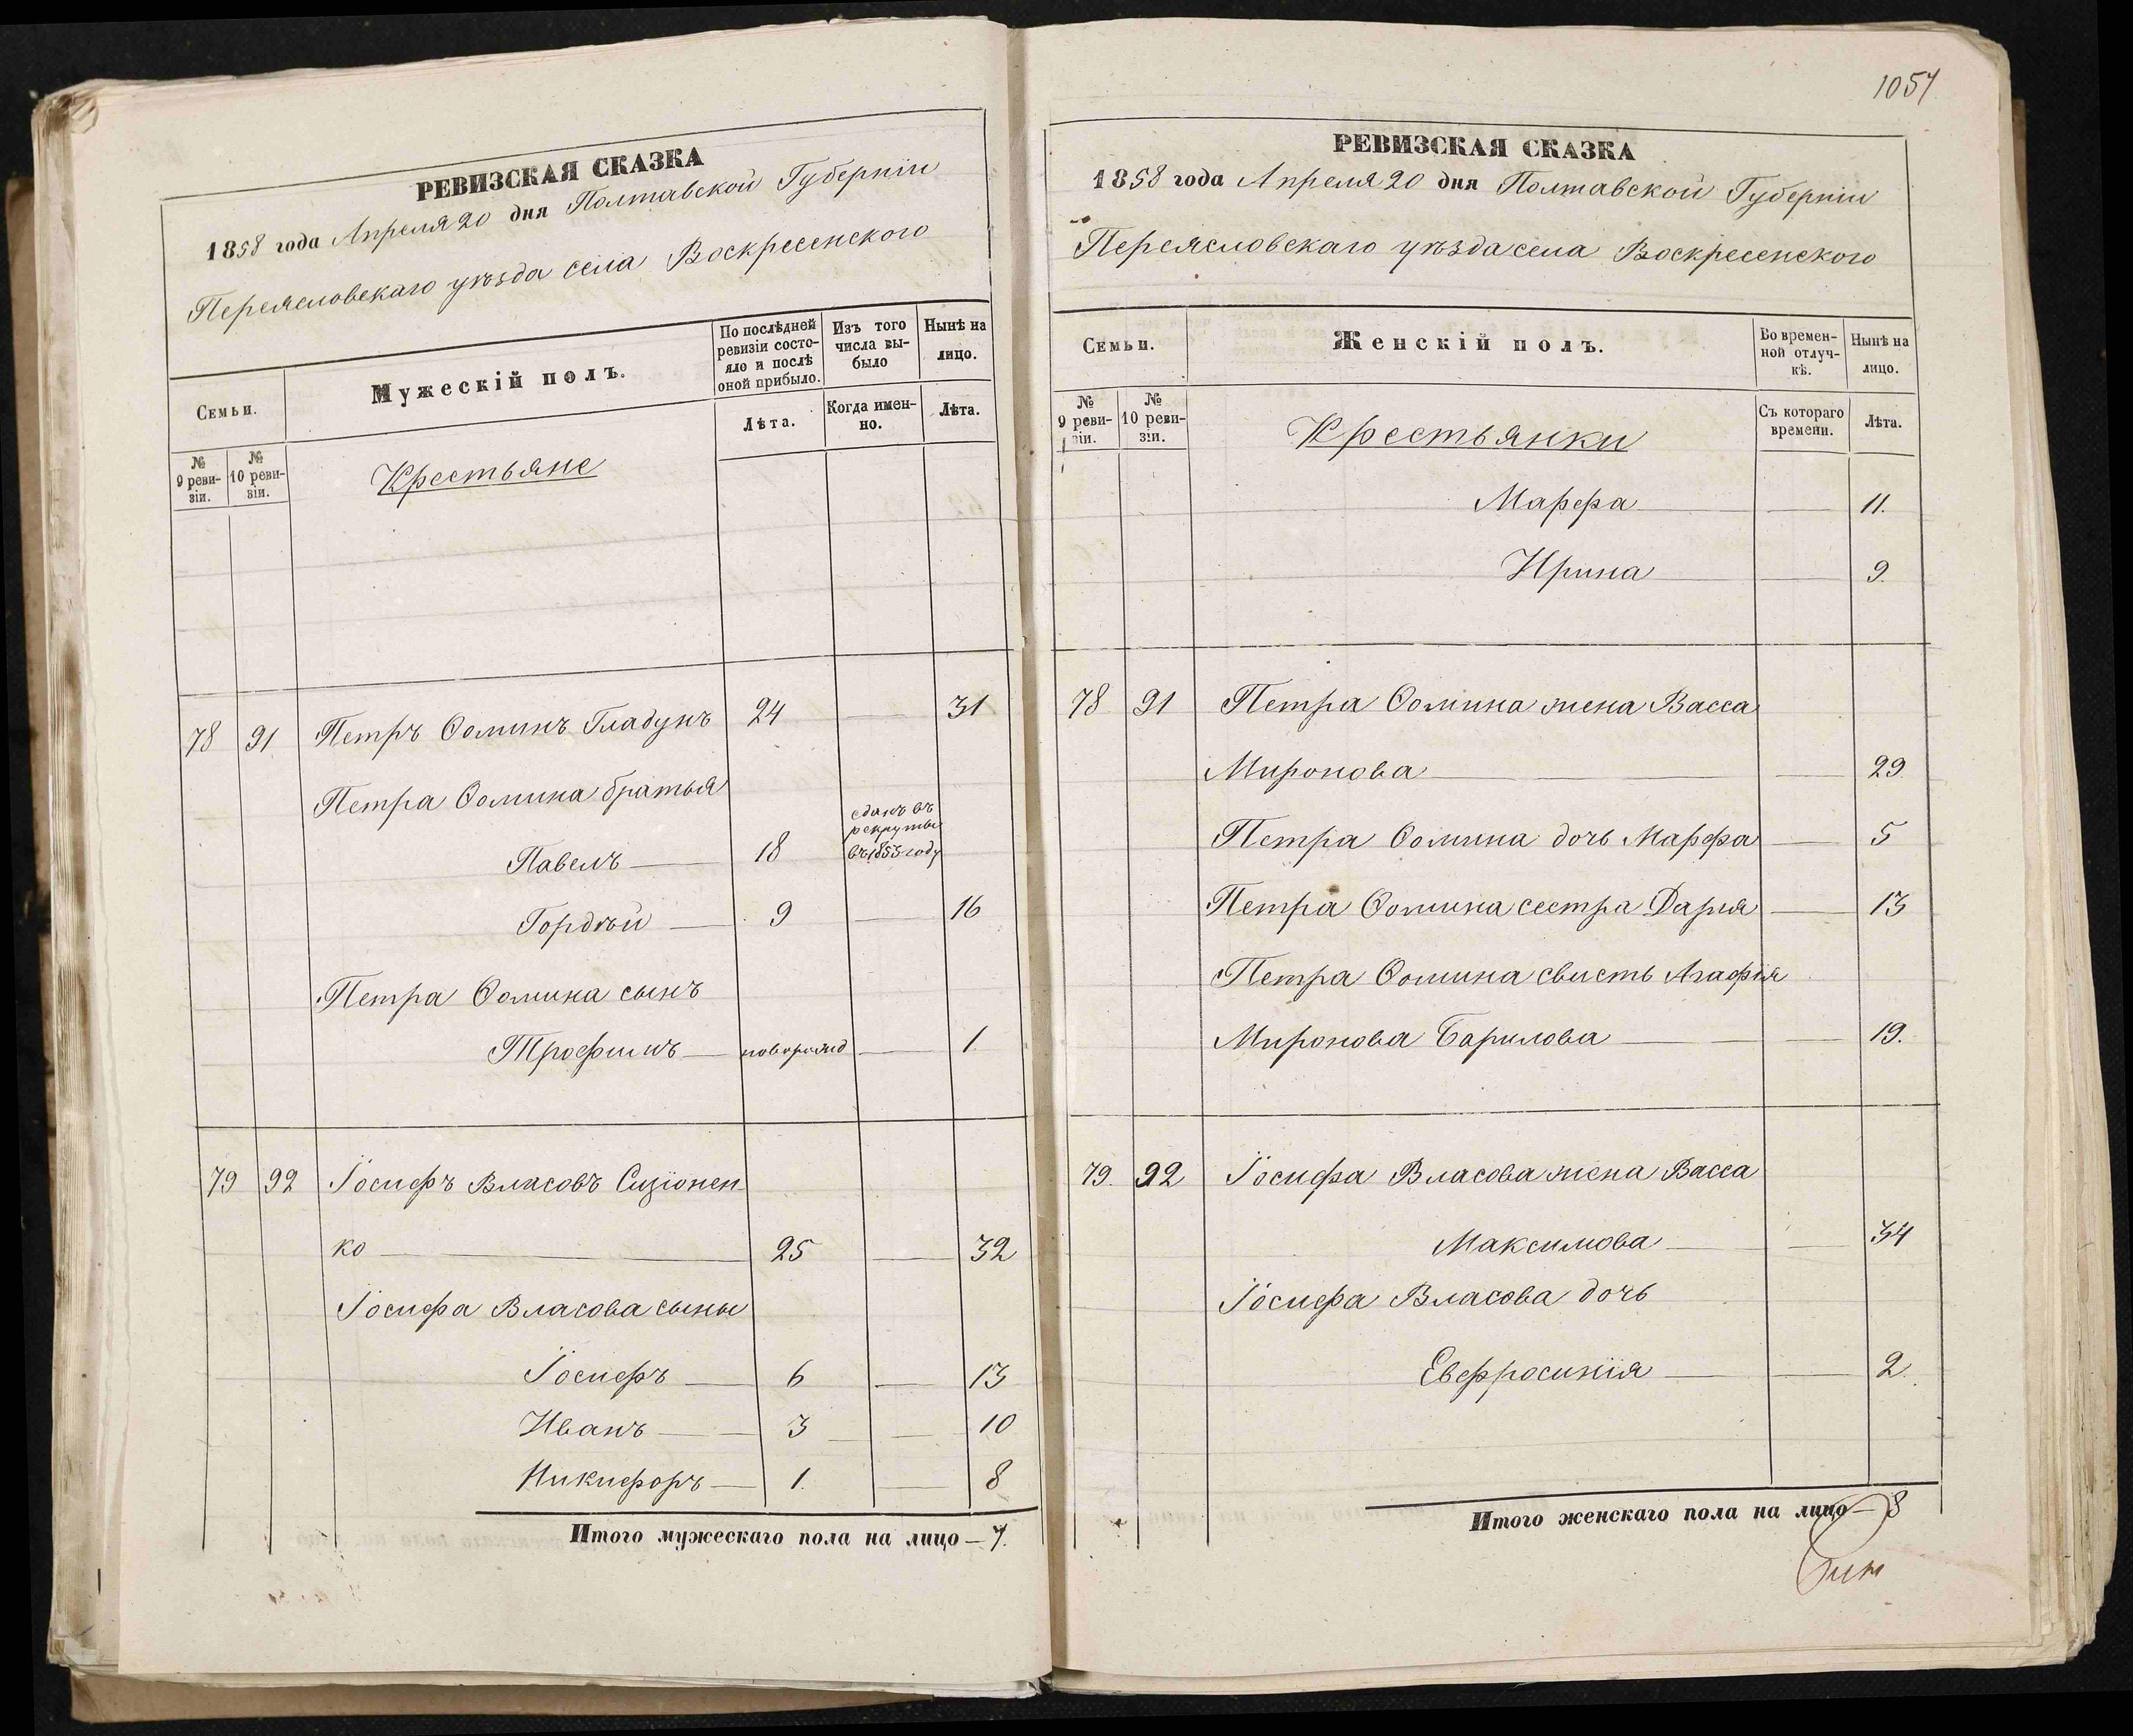 РЕВИЗСКАЯ СКАЗКА
1858 года Апреля 20 дня Полтавской Губерніи
Переясловскаго уѣзда села Воскресенского
Семьи.
Мужескій полъ.
По послѣдней ревизіи состояло и послѣ оной прибыло.
Изъ того числа выбыло
Нынѣ на лицо.
№ 9 ревизіи.
№ 10 ревизіи.
Крестьяне
Лѣта.
Когда именно.
Лѣта.
78 91 Петръ Ѳоминъ Гладунъ 24 — 31
Петра Ѳомина братья
Павелъ — 18 сданъ въ рекруты въ 1853 году
Гордѣй — 9 — 16
Петра Ѳомина сынъ
Трофимъ — новорожд — 1
79 92 Іосифъ Власовъ
ко — 25 — 32
Іосифа Власова сыны
Іосифъ — 6 — 13
Иванъ — 3 — 10
Никифоръ — 1. — 8
Итого мужескаго пола на лицо — 7.
1057
РЕВИЗСКАЯ СКАЗКА
1858 года Апреля 20 дня Полтавской Губерніи
Переясловскаго уѣзда села Воскресенского
Семьи.
Женскій полъ.
Во временной отлучкѣ.
Нынѣ на лицо.
№ 9 ревизіи.
№ 10 ревизіи.
Крестьянки
Съ котораго времени.
Лѣта.
Марфа — 11.
Ирина — 9.
78 91 Петра Ѳомина жена Васса
Миронова — 29.
Петра Ѳомина дочь Марфа — 5
Петра Ѳомина сестра Дарья — 13
Петра Ѳомина свисть Агафія
Миронова Барилова — 19.
79. 92 Іосифа Власова жена Васса
Максимова — 34
Іосифа Власова дочь
Евфросинія — 2.
Итого женскаго пола на лицо — 8